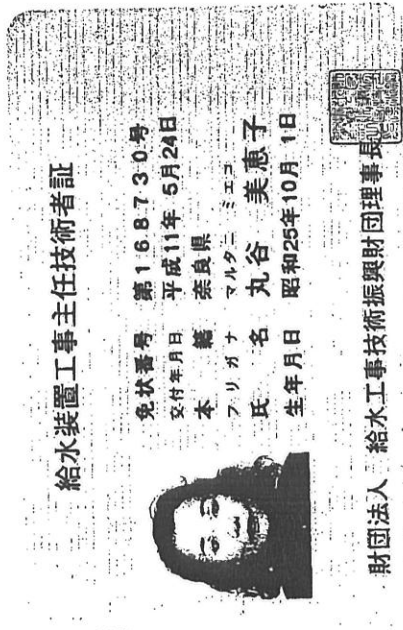 給水装置工事主任技術者証
免状番号 第168730号
交付年月日 平成11年 5月24日
本籍 奈良県
フリガナ マルタニ ミエコ
氏名 丸谷 美恵子
生年月日 昭和25年10月 1日
財団法人 給水工事技術振興財団理事長